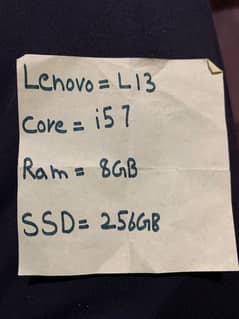 Lenovo = L13
Core = i5 7
Ram = 8GB
SSD = 256GB